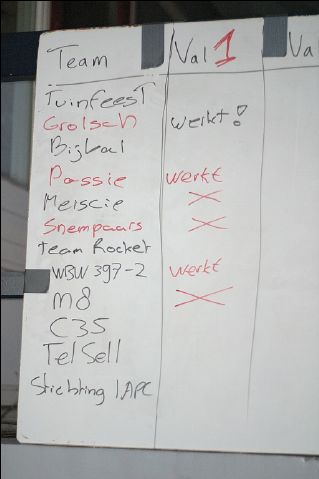 Team Val 1 Va
TuinfeesT
Grolsch werkt!
Bigval
Passie werkt
Meiscie X
Snempaars X
Team Rocket
WBW 397-2 werkt
M8 X
C35
TelSell
Stichting IAPC